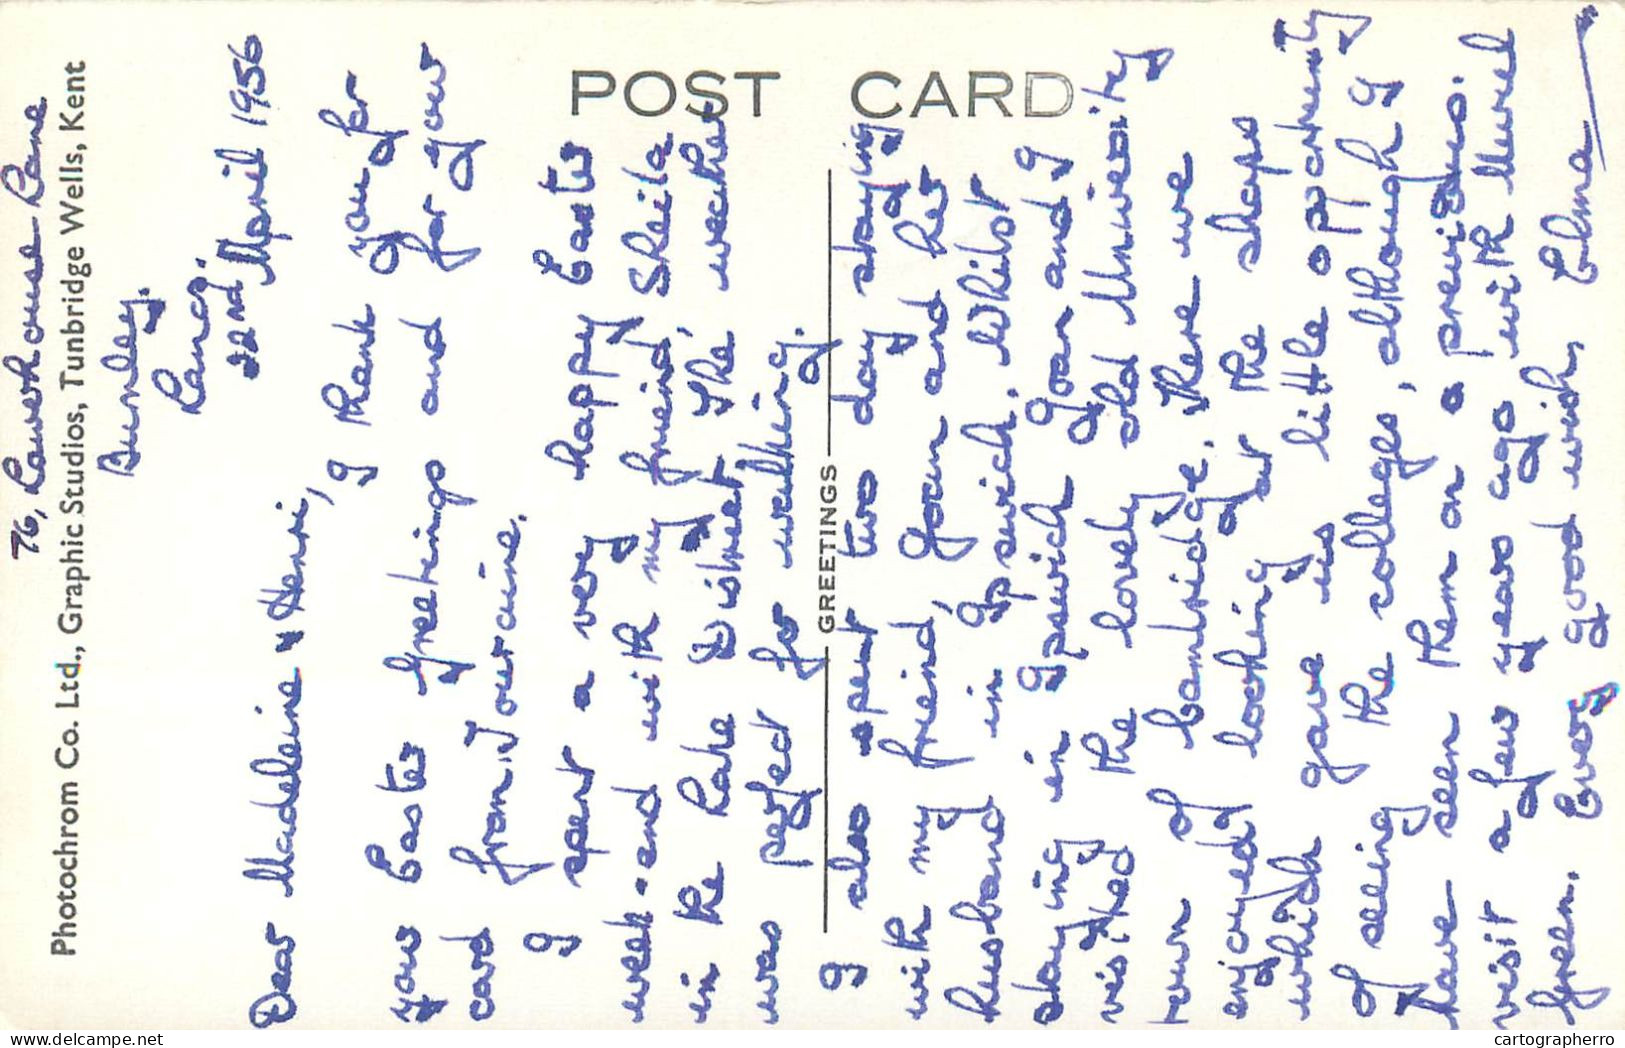 POST CARD
GREETINGS
Photochrom Co. Ltd., Graphic Studios, Tunbridge Wells, Kent
76, Lawhouse Lane
Burnley.
Lancs.
22nd April 1956
Dear Madeleine & Henri,
I thank you for
your Easter greetings and for your
card from Touraine.
I spent a very happy Easter
week-end with my freind, Sheila
in the Lake District. The weather
was perfect for walking.
I also spent two days staying
with my freind, Joan and her
husband in Ipswich. Whilst
staying in Ipswich Joan and I
visited the lovely old University
town of Cambridge. There we
enjoyed looking at the shops
which gave us little opportunity
of seeing the colleges, although I
have seen them on a previous
visit a few years ago with Muriel
Green. Every good wish, Edna
www.delcampe.net
cartographerro